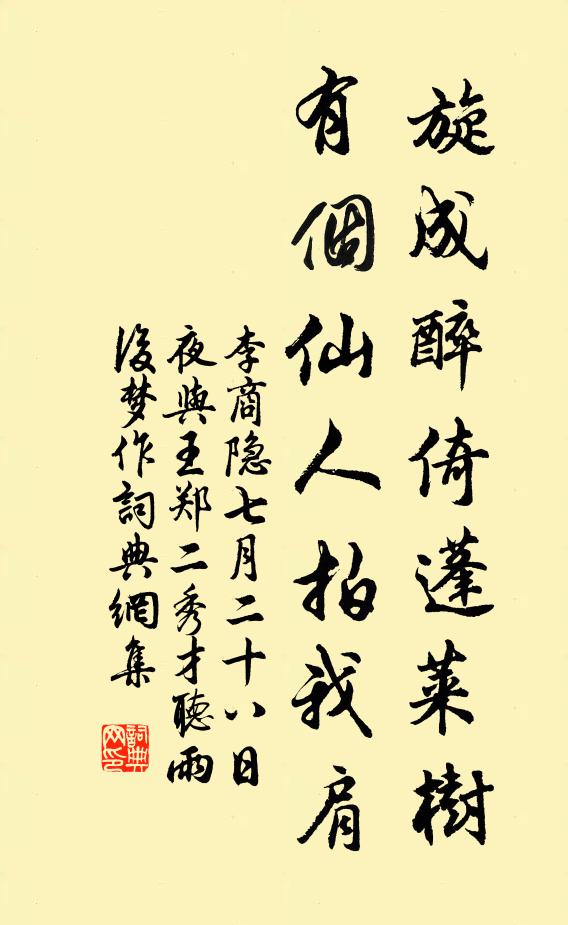 旋成醉倚蓬莱樹
有個仙人拍我肩
李商隐七月二十八日
夜與王郑二秀才聽雨
後梦作詞典網集
詞典
网印